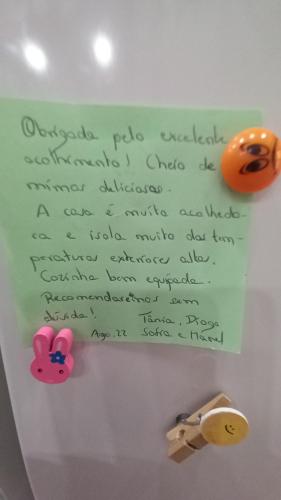 Obrigada pelo excelente
acolhimento! Cheio de
mimos deliciosos.
A casa é muito acolhedo-
ra e isola muito das tem-
peraturas exteriores altas.
Cozinha bem equipada.
Recomendaremos sem
dúvida! Tânia, Diogo
Ago, 22 Sofia e Manel